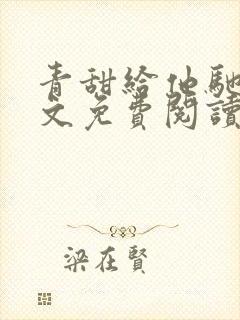 青甜給他馳
文免費閱讀
梁在賢